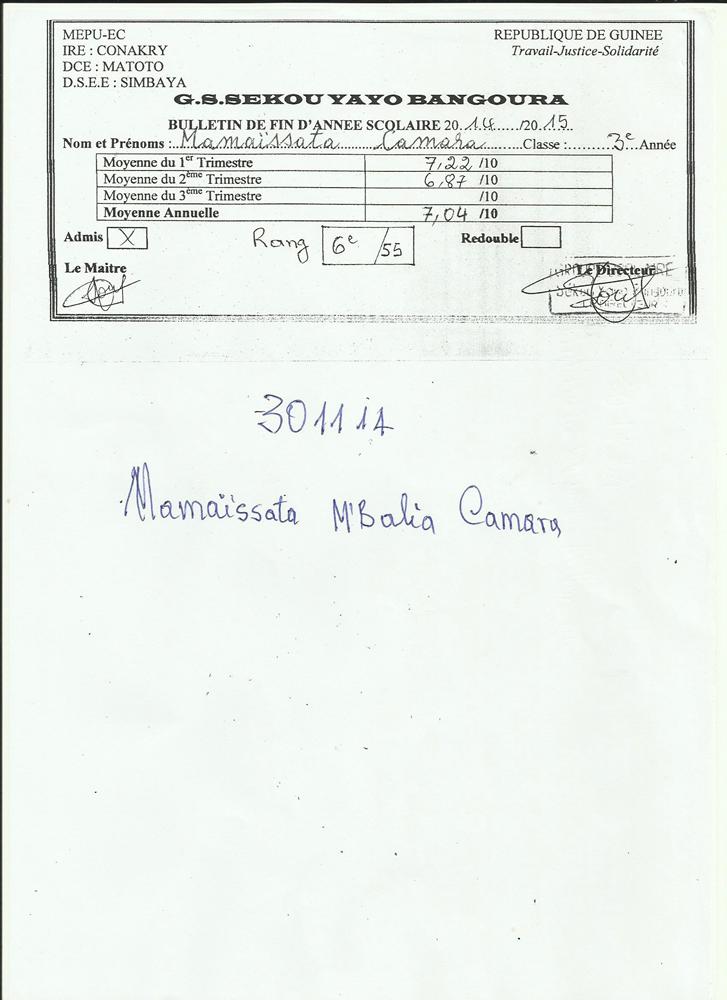 MEPU-EC REPUBLIQUE DE GUINEE
IRE : CONAKRY Travail-Justice-Solidarité
DCE : MATOTO
D.S.E.E : SIMBAYA
G.S.SEKOU YAYO BANGOURA
BULLETIN DE FIN D'ANNEE SCOLAIRE 20..14....../20.15..
Nom et Prénoms :..Mamaïssata........Camara.........Classe :.........3e Année
Moyenne du 1er Trimestre 7,22 /10
Moyenne du 2ème Trimestre 6,87 /10
Moyenne du 3ème Trimestre /10
Moyenne Annuelle 7,04 /10
Admis X Rang 6e /55 Redouble
Le Maitre Le Directeur
301114
Mamaïssata M'Balia Camara